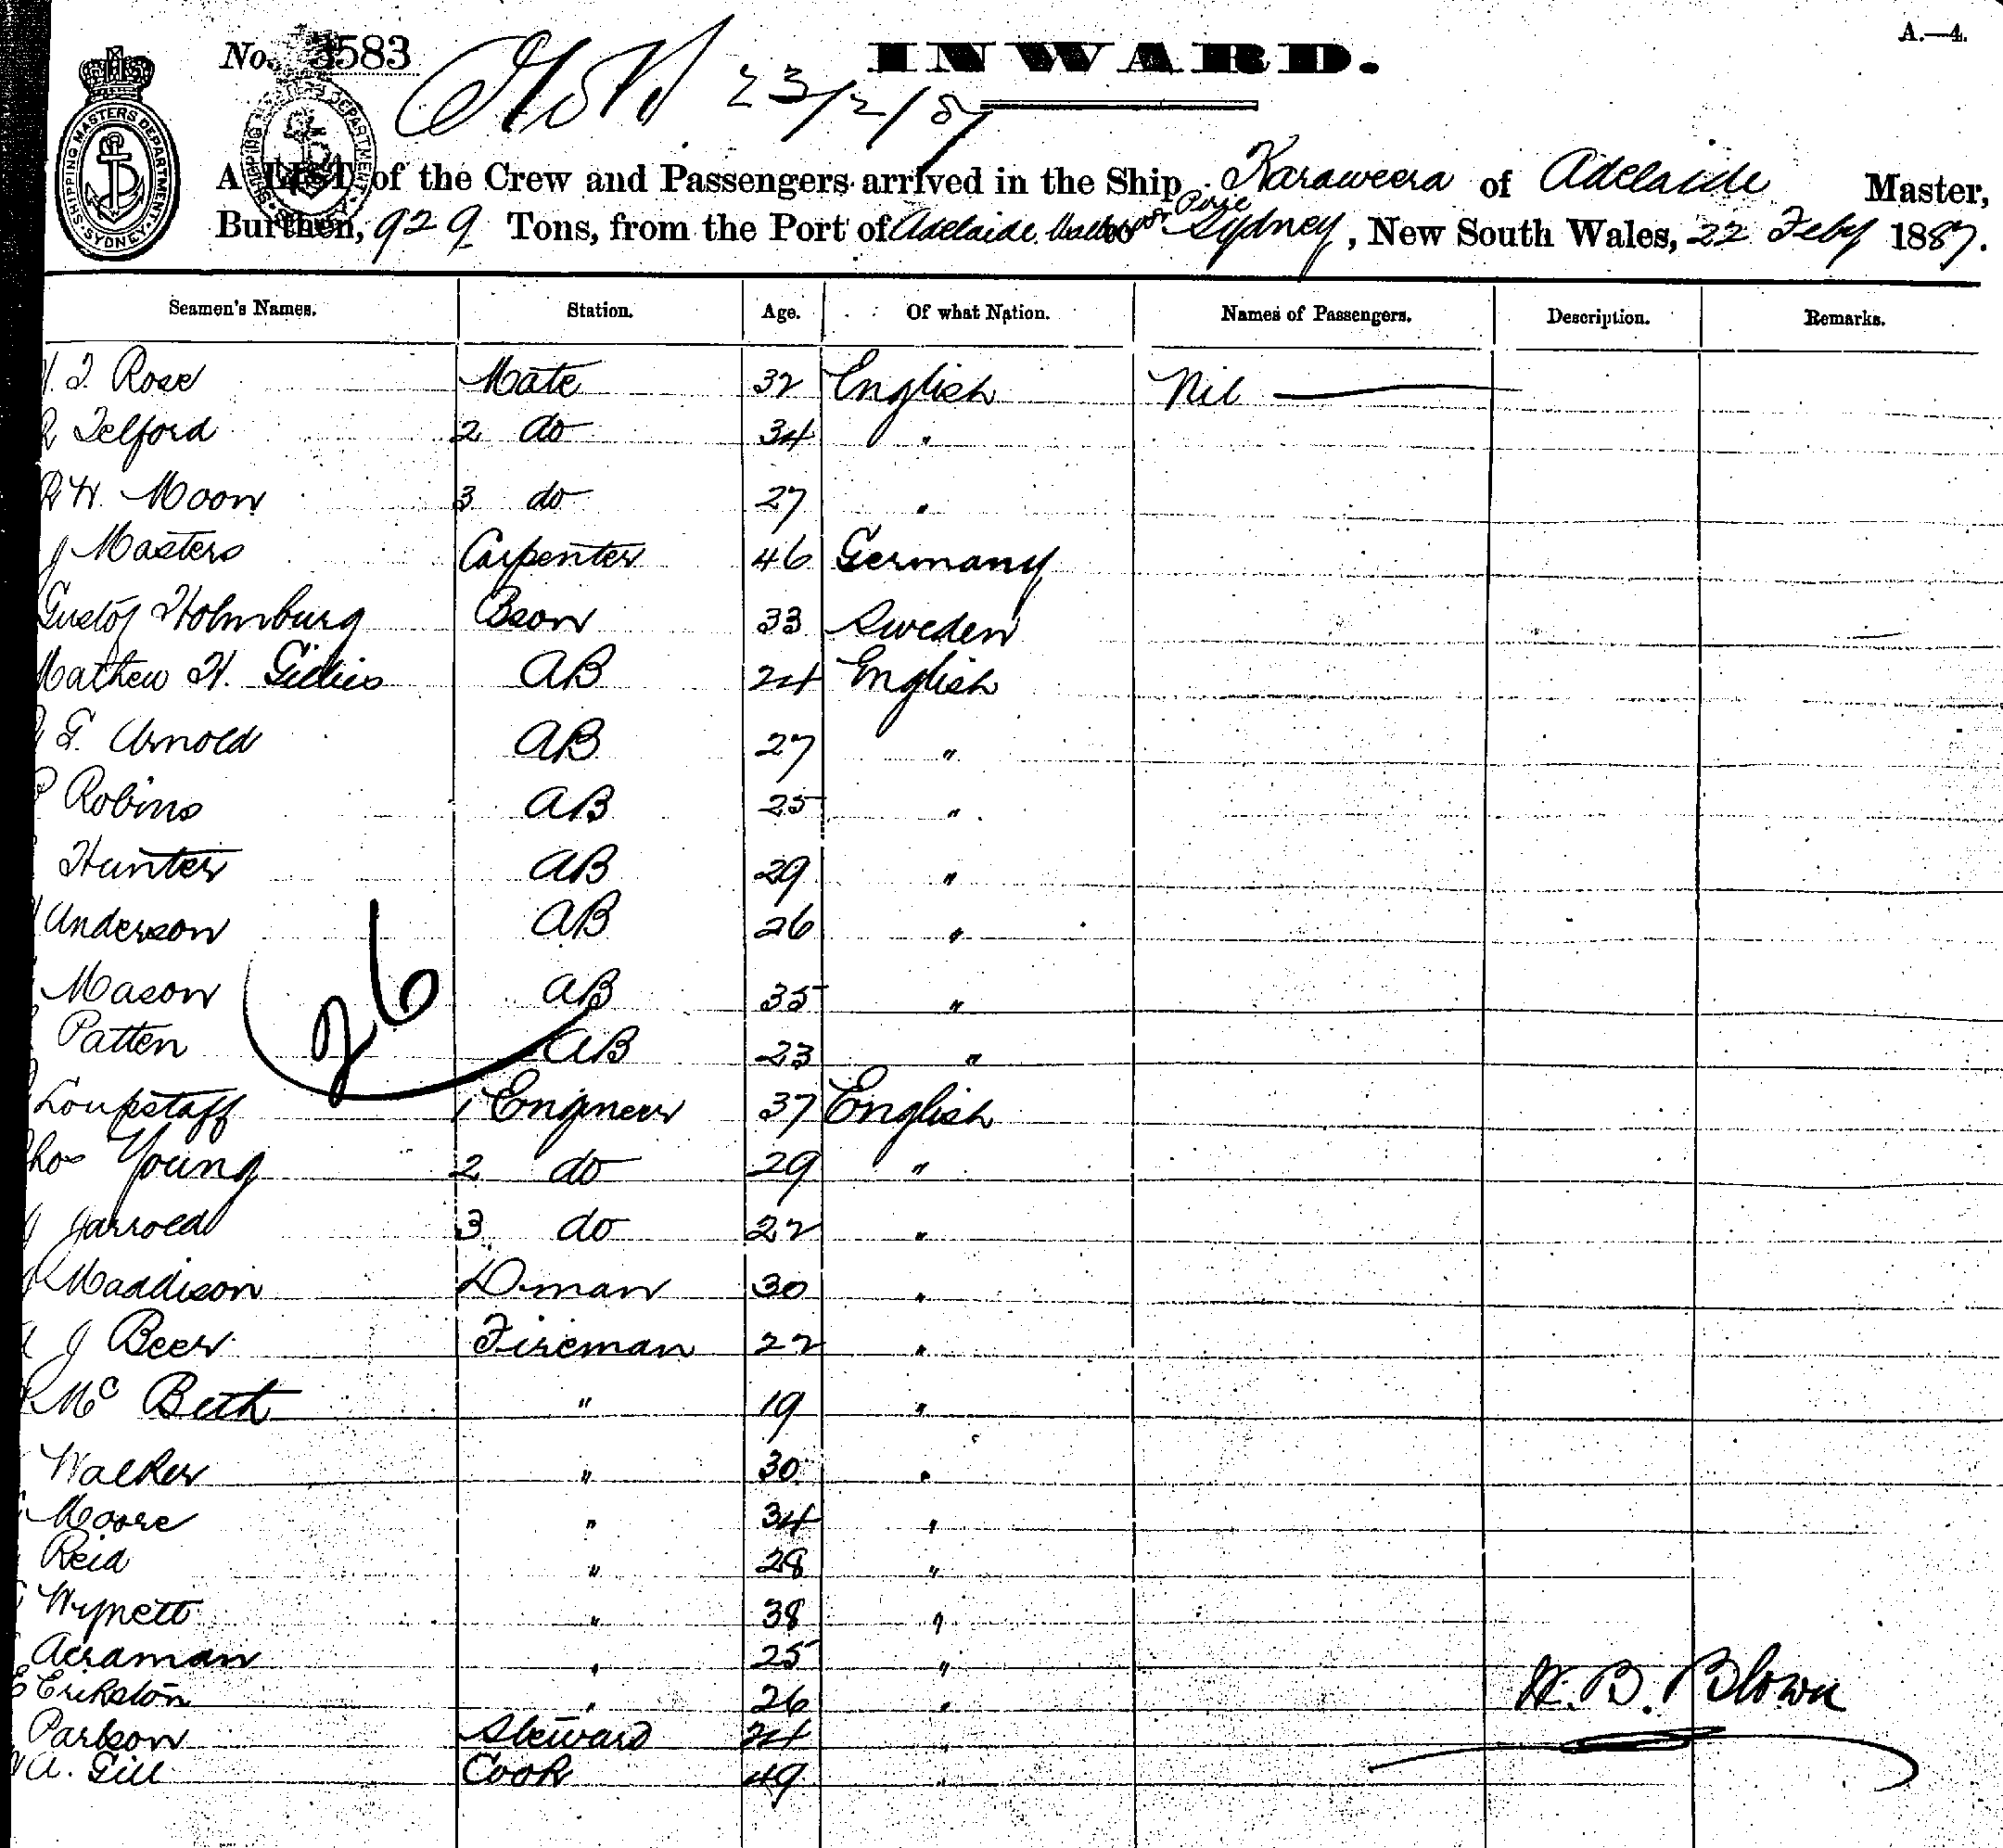 A.—4.
No. 3583
INWARD.
23/2/87
SHIPPING MASTERS DEPARTMENT SYDNEY
A LIST of the Crew and Passengers arrived in the Ship Karaweera of Adelaide Master,
Burthen, 929 Tons, from the Port of Adelaide Sydney, New South Wales, 22 Feby 1887.
Seamen's Names. Station. Age. Of what Nation. Names of Passengers. Description. Remarks.
J. Rose Mate 32 English Nil —
R Telford 2 do 34 "
R W. Moon 3 do 27 "
J Masters Carpenter 46 Germany
Gustof Holmburg Bson 33 Sweden
Mathew H. Gillies AB 24 English
G. Arnold AB 27 "
Robins AB 25 "
Hunter AB 29 "
Anderson AB 26 "
Mason AB 35 "
26
Patten AB 23 "
Loupstaff 1 Engineer 37 English
hos Young 2 do 29 "
J Jarrold 3 do 22 "
Maddison D-man 30 "
J Beer Fireman 22 "
Mc Beth " 19 "
Walker " 30 "
Moore " 34 "
Reid " 28 "
Wynett " 38 "
Acraman " 25 "
E Erikston " 26 "
Parkson Steward 24 "
A. Gill Cook 49 "
W. B. Blown